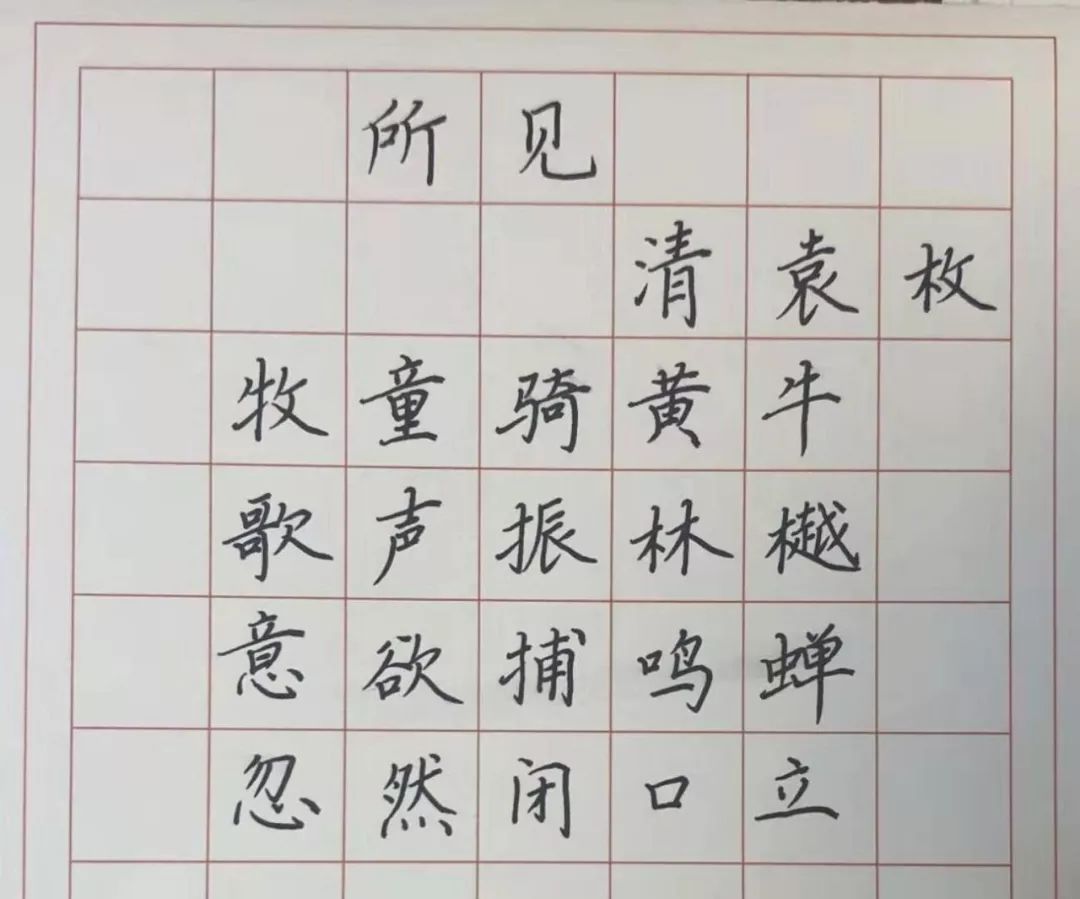 所见
清袁枚
牧童骑黄牛
歌声振林樾
意欲捕鸣蝉
忽然闭口立